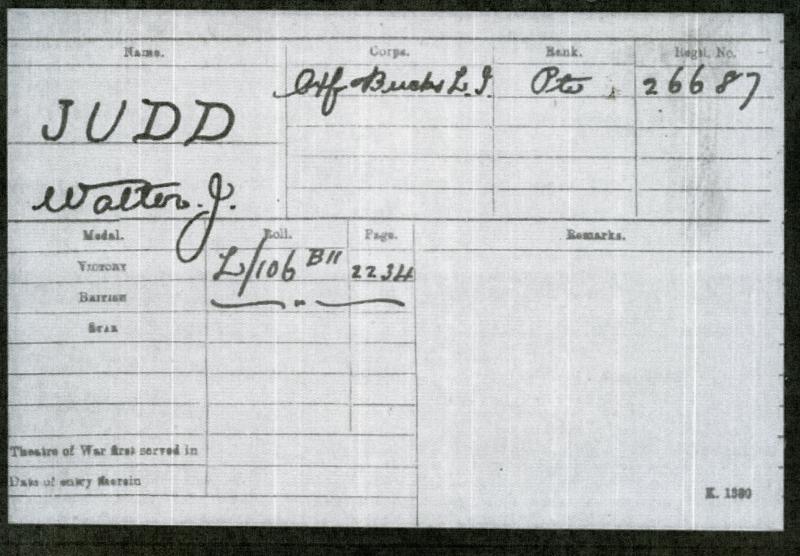 Name. Corps. Rank. Regtl. No.
JUDD Oxf Bucks L.I. Pte 26687
Walter. J.
Medal. Roll. Page. Remarks.
VICTORY L/106 B11 2234
BRITISH — " —
STAR
Theatre of War first served in
Date of entry therein
K. 1380